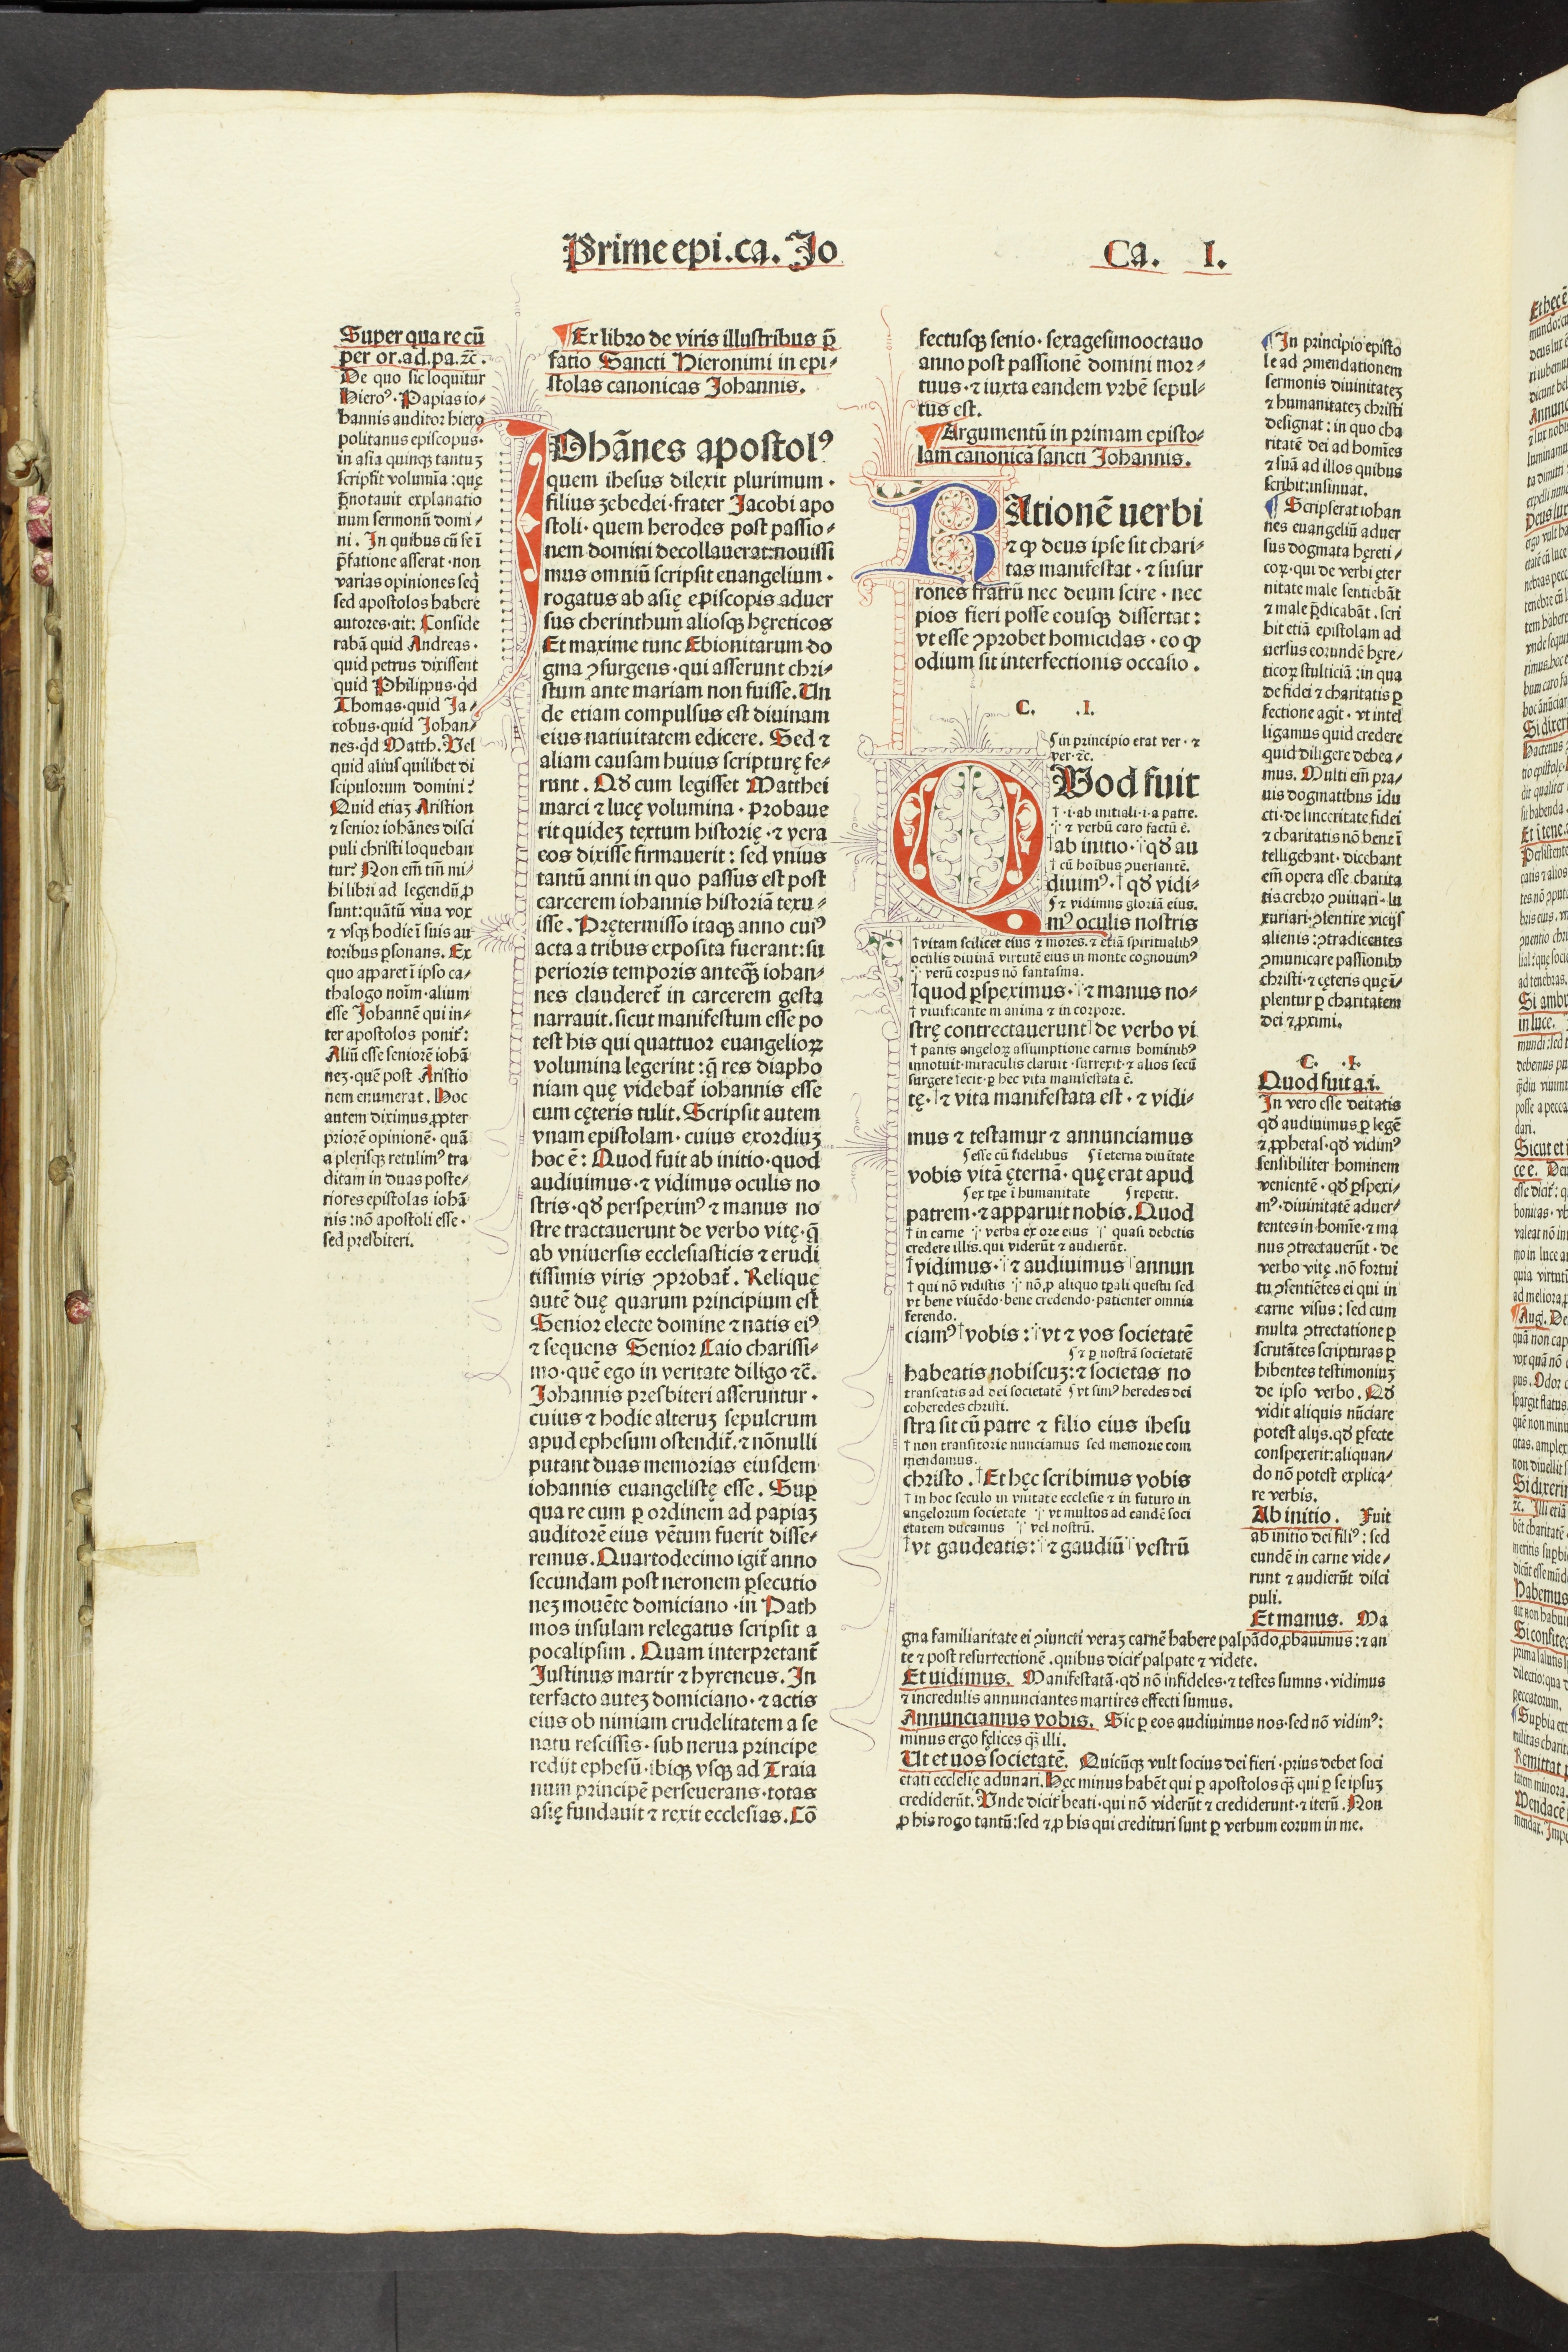 Prime epi.ca. Jo
Ca. I.
Super qua re cū
per or.ad.pa.⁊c̄.
De quo sic loquitur
Hieroꝰ. Papias io⸗
hannis auditor hiero
politanus episcopus·
in asia quinqꝫ tantuꝫ
scripsit volumīa : quę
p̄notauit explanatio
num sermonū domi⸗
ni . In quibus cū se ī
p̄fatione asserat · non
varias opiniones seq̄
sed apostolos habere
autores·ait: Conside
rabā quid Andreas·
quid petrus dixissent
quid Philippus·qd̄
Thomas·quid Ja⸗
cobus·quid Johan⸗
nes·qd̄ Matth. Vel
quid aliuſ quilibet di
scipulorum domini?
Quid etiaꝫ Aristion
⁊ senior iohānes disci
puli christi loqueban
tur? Non em̄ tm̄ mi⸗
hi libri ad legendū ꝓ
sunt:quātū viua vox
⁊ vsqꝫ hodie ī suis au
toribus ꝑsonans. Ex
quo apparet ī ipso ca⸗
thalogo noīm·alium
esse Johannē qui in⸗
ter apostolos ponit̄:
Aliū esse seniorē iohā
neꝫ·quē post Aristio
nem enumerat. Hoc
autem diximus ꝓpter
priorē opinionē· quā
a plerisqꝫ retulimꝰ tra
ditam in duas poste⸗
riores epistolas iohā
nis : nō apostoli esse·
sed presbiteri.
Ex libro de viris illustribus p̄
fatio Sancti Hieronimi in epi⸗
stolas canonicas Johannis.
IOhānes apostolꝰ
quem ihesus dilexit plurimum ·
filius ꝫebedei·frater Jacobi apo
stoli· quem herodes post passio⸗
nem domini decollauerat:nouissi
mus omniū scripsit euangelium ·
rogatus ab asię episcopis aduer
sus cherinthum aliosqꝫ hęreticos
Et maxime tunc Ebionitarum do
gma ꝯsurgens·qui asserunt chri⸗
stum ante mariam non fuisse. Un
de etiam compulsus est diuinam
eius natiuitatem edicere. Sed ⁊
aliam causam huius scripturę fe⸗
runt. Qd̄ cum legisset Matthei
marci ⁊ lucę volumina · probaue
rit quideꝫ textum historię·⁊ vera
eos dixisse firmauerit : sed vnius
tantū anni in quo passus est post
carcerem iohannis historiā texu⸗
isse. Prętermisso itaqꝫ anno cuiꝰ
acta a tribus exposita fuerant:su
perioris temporis anteqꝫ̄ iohan⸗
nes clauderet̄ in carcerem gesta
narrauit. sicut manifestum esse po
test his qui quattuor euangelioꝝ
volumina legerint:q̄ res diapho
niam quę videbat̄ iohannis esse
cum cęteris tulit. Scripsit autem
vnam epistolam· cuius exordiuꝫ
hoc ē: Quod fuit ab initio·quod
audiuimus·⁊ vidimus oculis no
stris·qd̄ perspeximꝰ ⁊ manus no
stre tractauerunt de verbo vitę·q̄
ab vniuersis ecclesiasticis ⁊ erudi
tissimis viris ꝯprobat̄. Relique
autē duę quarum principium est
Senior electe domine ⁊ natis eiꝰ
⁊ sequens Senior Caio charissi⸗
mo·quē ego in veritate diligo ⁊c̄.
Johannis presbiteri asseruntur·
cuius ⁊ hodie alteruꝫ sepulcrum
apud ephesum ostendit̄·⁊ nōnulli
putant duas memorias eiusdem
iohannis euangelistę esse. Suꝑ
qua re cum ꝑ ordinem ad papiaꝫ
auditorē eius vētum fuerit disse⸗
remus. Quartodecimo igit̄ anno
secundam post neronem ꝑsecutio
neꝫ mouēte domiciano ·in Path
mos insulam relegatus scripsit a
pocalipsim. Quam interpretant̄
Justinus martir ⁊ hyreneus. In
terfacto auteꝫ domiciano·⁊ actis
eius ob nimiam crudelitatem a se
natu rescissis·sub nerua principe
redijt ephesū·ibiqꝫ vsqꝫ ad Traia
num principē perseuerans·totas
asię fundauit ⁊ rexit ecclesias. Cō
fectusqꝫ senio·sexagesimooctauo
anno post passionē domini mor⸗
tuus·⁊ iuxta eandem vrbē sepul⸗
tus est.
Argumentū in primam episto⸗
lam canonicā sancti Johannis.
RAtionē uerbi
⁊ qꝫ deus ipse sit chari⸗
tas manifestat · ⁊ susur
rones fratrū nec deum scire · nec
pios fieri posse eousqꝫ dissertat:
vt esse ꝯprobet homicidas · eo qꝫ
odium sit interfectionis occasio.
C. I.
in principio erat ver· ⁊
ver·⁊c̄.
QUod fuit
† ·i·ab initiali·i·a patre.
⁊ verbū caro factū ē.
†ab initio·qd̄ au
† cū hoibus ꝯuersantē.
diuimꝰ·†qd̄ vidi⸗
⁊ vidimus gloriā eius.
mꝰ oculis nostris
† vitam scilicet eius ⁊ mores·⁊ etiā spiritualibꝰ
oculis diuinā virtutē eius in monte cognouimꝰ
verū corpus nō fantasma.
†quod ꝑspeximus·⁊ manus no⸗
† viuificante m anima ⁊ in corpore.
strę contrectauerunt†de verbo vi
† panis angeloꝝ assumptione carnis hominibꝰ
innotuit·miraculis claruit·surrexit·⁊ alios secū
surgere fecit·ꝑ hec vita manifestata ē.
tę·†⁊ vita manifestata est · ⁊ vidi⸗
mus ⁊ testamur ⁊ annunciamus
esse cū fidelibus ī eterna diuinitate
vobis vitā ęternā· quę erat apud
ex tꝑe ī humanitate repetit.
patrem·⁊ apparuit nobis. Quod
† in carne verba ex ore eius quasi debetis
credere illis·qui viderūt ⁊ audierūt.
†vidimus·⁊ audiuimus †annun
† qui nō vidistis nō ꝓ aliquo tꝑali questu sed
vt bene viuēdo·bene credendo·patienter omnia
ferendo.
ciamꝰ†vobis:vt ⁊ vos societatē
⁊ ꝑ nostrā societatē
habeatis nobiscuꝫ:⁊ societas no
transeatis ad dei societatē vt simꝰ heredes dei
coheredes christi.
stra sit cū patre ⁊ filio eius ihesu
† non transitorie nunciamus sed memorie com
mendamus.
christo. †Et hęc scribimus vobis
† in hoc seculo in vnitate ecclesie ⁊ in futuro in
angelorum societate vt multos ad eandē soci
etatem ducamus vel nostrū.
†vt gaudeatis:⁊ gaudiū vestrū
In principio episto
le ad ꝯmendationem
sermonis diuinitateꝫ
⁊ humanitateꝫ christi
designat : in quo cha
ritatē dei ad homīes
⁊ suā ad illos quibus
scribit:insinuat.
Scripserat iohan
nes euangeliū aduer
sus dogmata hęreti⸗
coꝝ·qui de verbi ęter
nitate male sentiebāt
⁊ male p̄dicabāt·scri
bit etiā epistolam ad
uersus eorundē hęre⸗
ticoꝝ stulticiā : in qua
de fidei ⁊ charitatis ꝑ
fectione agit · vt intel
ligamus quid credere
quid diligere debea⸗
mus. Multi em̄ pra⸗
uis dogmatibus īdu
cti·de sinceritate fidei
⁊ charitatis nō bene ī
telligebant·dicebant
em̄ opera esse charita
tis crebro ꝯuiuari·lu
xuriari·ꝯsentire vicijs
alienis : ꝯtradicentes
ꝯmunicare passionibꝰ
christi·⁊ cęteris quę ī⸗
plentur ꝑ charitatem
dei ⁊ ꝓximi.
C. I.
Quod fuit a.i.
In vero esse deitatis
qd̄ audiuimus ꝑ legē
⁊ ꝓphetas·qd̄ vidimꝰ
sensibiliter hominem
venientē·qd̄ ꝑspexi⸗
mꝰ·diuinitatē aduer⸗
tentes in homīe·⁊ ma
nus ꝯtrectauerūt·de
verbo vitę·nō fortui
tu ꝯsentiētes ei qui in
carne visus : sed cum
multa ꝯtrectatione ꝑ
scrutātes scripturas ꝑ
hibentes testimoniuꝫ
de ipso verbo. Qd̄
vidit aliquis nūciare
potest alijs·qd̄ ꝑfecte
conspexerit:aliquan⸗
do nō potest explica⸗
re verbis.
Ab initio. Fuit
ab initio dei filiꝰ: sed
eundē in carne vide⸗
runt ⁊ audierūt disci
puli.
Et manus. Ma
gna familiaritate ei ꝯiuncti veraꝫ carnē habere palpādo ꝓbauimus:⁊ an
te ⁊ post resurrectionē·quibus dicit̄ palpate ⁊ videte.
Et uidimus. Manifestatā·qd̄ nō infideles·⁊ testes sumus·vidimus
⁊ incredulis annunciantes martires effecti sumus.
Annunciamus vobis. Sic ꝑ eos audiuimus nos·sed nō vidimꝰ:
minus ergo fęlices qꝫ̄ illi.
Ut et uos societatē. Quicūqꝫ vult socius dei fieri·prius debet soci
etati ecclesie adunari. Hęc minus habēt qui ꝑ apostolos qꝫ̄ qui ꝑ se ipsuꝫ
crediderūt. Unde dicit̄ beati·qui nō viderūt ⁊ crediderunt·⁊ iterū. Non
ꝓ his rogo tantū:sed ⁊ ꝓ his qui credituri sunt ꝑ verbum eorum in me.